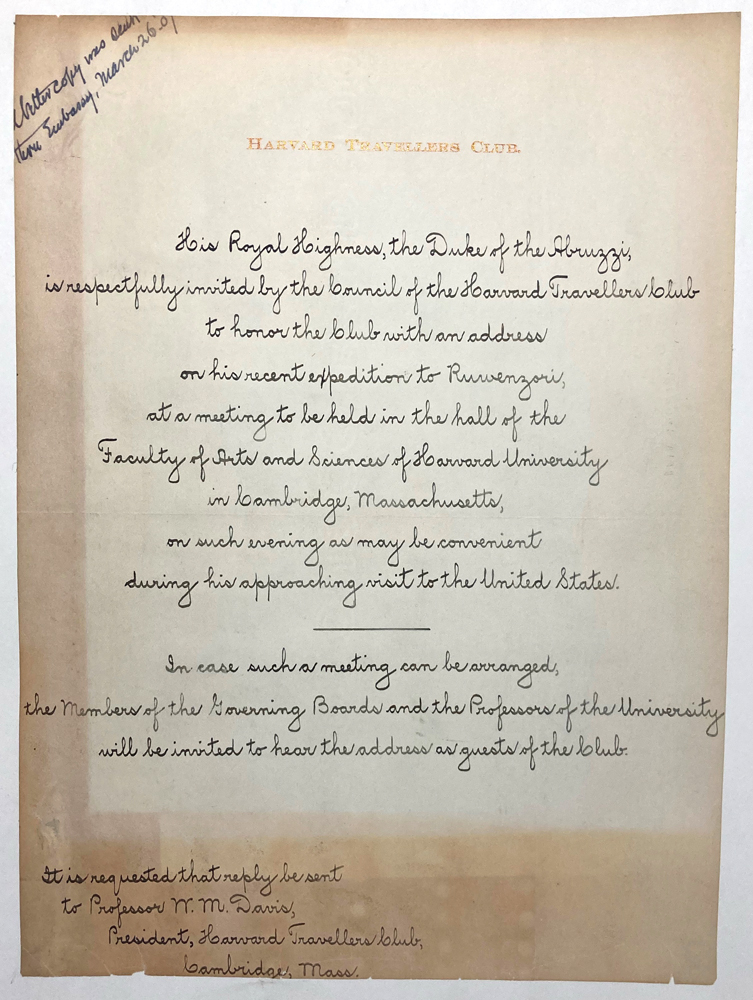 A better copy was sent
thru Embassy, March 26-07
HARVARD TRAVELLERS CLUB.
His Royal Highness, the Duke of the Abruzzi,
is respectfully invited by the Council of the Harvard Travellers Club
to honor the Club with an address
on his recent expedition to Ruwenzori,
at a meeting to be held in the hall of the
Faculty of Arts and Sciences of Harvard University
in Cambridge, Massachusetts,
on such evening as may be convenient
during his approaching visit to the United States.
In case such a meeting can be arranged,
the Members of the Governing Boards and the Professors of the University
will be invited to hear the address as guests of the Club.
It is requested that reply be sent
to Professor W. M. Davis,
President, Harvard Travellers Club,
Cambridge, Mass.